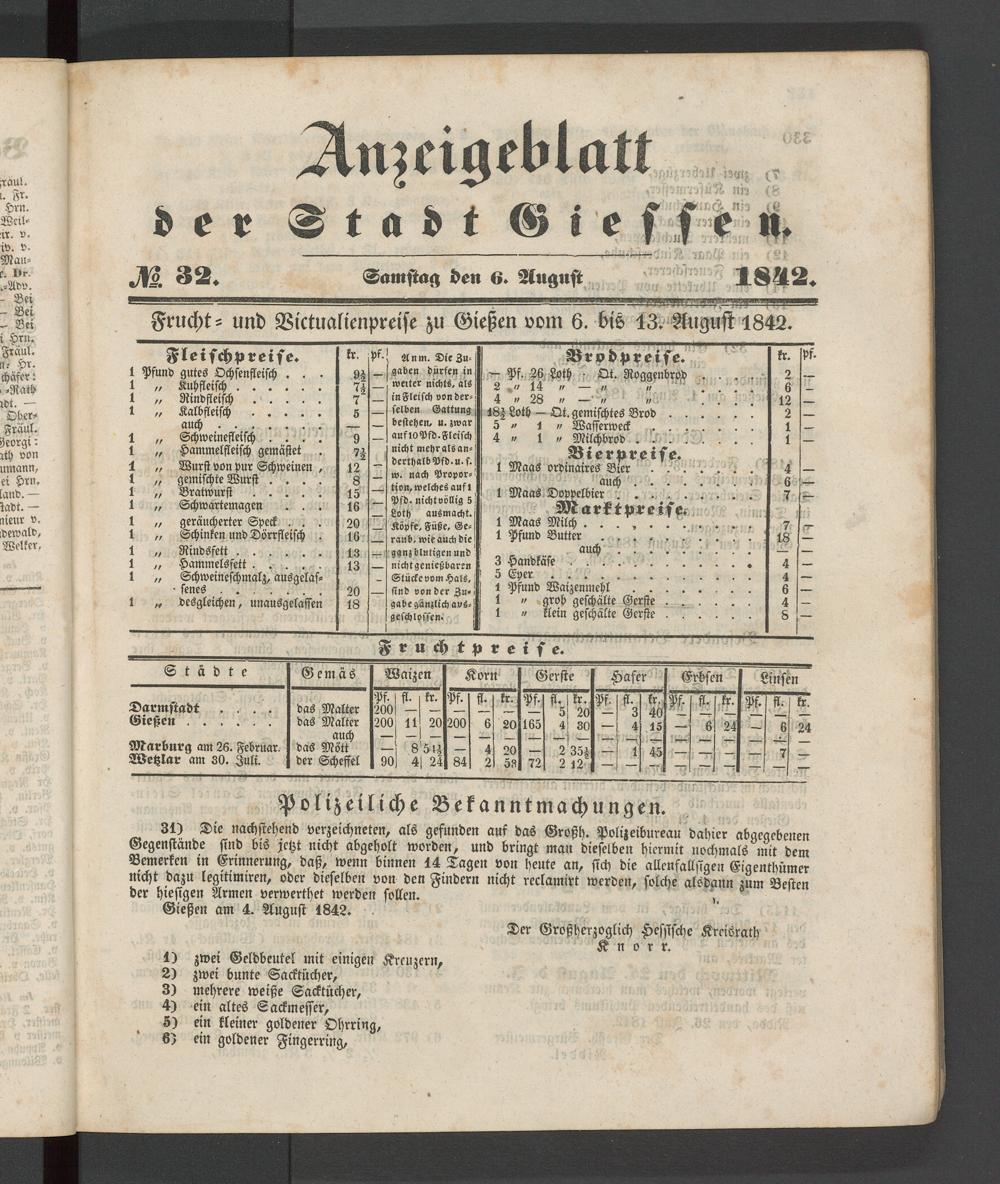 Anzeigeblatt
der Stadt Giessen.
No. 32. Samstag den 6. August 1842.
Frucht- und Victualienpreise zu Gießen vom 6. bis 13. August 1842.
Fleischpreise. kr. pf.
1 Pfund gutes Ochsenfleisch . . . 9½ —
1 „ Kuhfleisch . . . . . 7½ —
1 „ Rindfleisch . . . . . 7 —
1 „ Kalbfleisch . . . . . 5 —
auch . . . . . — —
1 „ Schweinefleisch . . . . 9 —
1 „ Hammelfleisch gemästet . . 7½ —
1 „ Wurst von pur Schweinen , 12 —
1 „ gemischte Wurst . . . . 8 —
1 „ Bratwurst . . . . . 15 —
1 „ Schwartemagen . . . . 16 —
1 „ geräucherter Speck . . . 20 —
1 „ Schinken und Dörrfleisch . 16 —
1 „ Rindsfett . . . . . 13 —
1 „ Hammelsfett . . . . . 13 —
1 „ Schweineschmalz, ausgelas-
senes . . . . . 20 —
1 „ desgleichen, unausgelassen 18 —
Anm. Die Zu-
gaben dürfen in
weiter nichts, als
in Fleisch von der-
selben Gattung
bestehen, u. zwar
auf 10 Pfd. Fleisch
nicht mehr als an-
derthalb Pfd. u. s.
w. nach Propor-
tion, welches auf 1
Pfd. nicht völlig 5
Loth ausmacht.
Köpfe, Füße, Ge-
raub, wie auch die
ganz blutigen und
nicht genießbaren
Stücke vom Hals,
sind von der Zu-
gabe gänzlich aus-
geschlossen.
Brodpreise. kr. pf.
— Pf. 26 Loth — Qt. Roggenbrod . . 2 —
2 „ 14 „ — „ „ . . 6 —
4 „ 28 „ — „ „ . . 12 —
18½ Loth — Qt. gemischtes Brod . . . . 2 —
5 „ 1 „ Wasserweck . . . . 1 —
4 „ 1 „ Milchbrod . . . . 1 —
Bierpreise.
1 Maas ordinaires Bier . . . . 4 —
auch . . . . 6 —
1 Maas Doppelbier . . . . . 7 —
Marktpreise.
1 Maas Milch . . . . . . 7 —
1 Pfund Butter . . . . . . 18 —
auch . . . . . — —
3 Handkäse . . . . . . . 4 —
5 Eyer . . . . . . . . 4 —
1 Pfund Waizenmehl . . . . . 6 —
1 „ grob geschälte Gerste . . . . 4 —
1 „ klein geschälte Gerste . . . . 8 —
Fruchtpreise.
Städte Gemäs Waizen Korn Gerste Hafer Erbsen Linsen
Pf. fl. kr. Pf. fl. kr. Pf. fl. kr. Pf. fl. kr. Pf. fl. kr. Pf. fl. kr.
Darmstadt . . . . das Malter 200 — — — — — — 5 20 — 3 40 — — — — — —
Gießen . . . . . das Malter 200 11 20 200 6 20 165 4 30 — 4 15 — 6 24 — 6 24
auch — — — — — — — — — — — — — — — — — —
Marburg am 26. Februar. das Mött — 8 51½ — 4 20 — 2 35½ — 1 45 — — — — 7 —
Wetzlar am 30. Juli. der Scheffel 90 4 24 84 2 58 72 2 12 — — — — — — — — —
Polizeiliche Bekanntmachungen.
31) Die nachstehend verzeichneten, als gefunden auf das Großh. Polizeibureau dahier abgegebenen
Gegenstände sind bis jetzt nicht abgeholt worden, und bringt man dieselben hiermit nochmals mit dem
Bemerken in Erinnerung, daß, wenn binnen 14 Tagen von heute an, sich die allenfallsigen Eigenthümer
nicht dazu legitimiren, oder dieselben von den Findern nicht reclamirt werden, solche alsdann zum Besten
der hiesigen Armen verwerthet werden sollen.
Gießen am 4. August 1842.
Der Großherzoglich Hessische Kreisrath
Knorr.
1) zwei Geldbeutel mit einigen Kreuzern,
2) zwei bunte Sacktücher,
3) mehrere weiße Sacktücher,
4) ein altes Sackmesser,
5) ein kleiner goldener Ohrring,
6) ein goldener Fingerring,